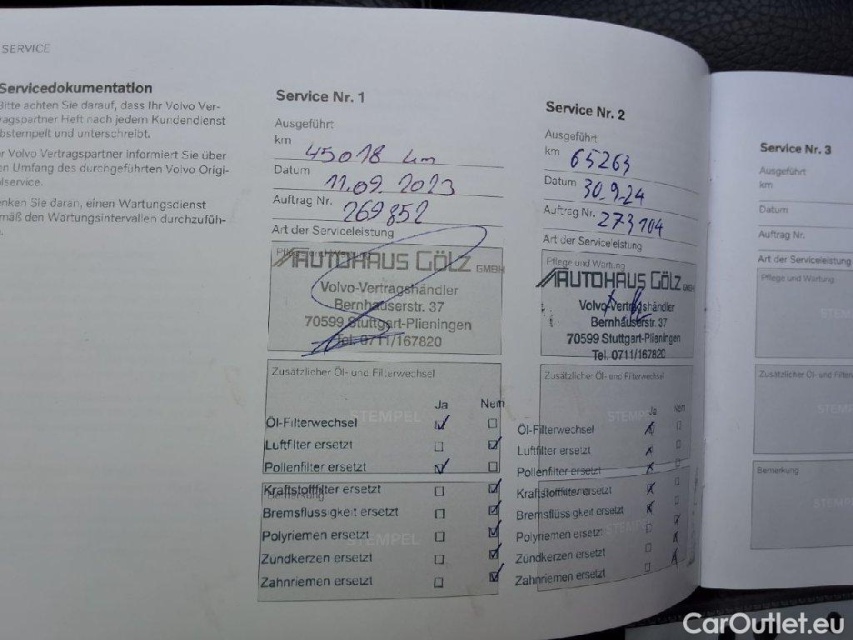 SERVICE
Servicedokumentation
Bitte achten Sie darauf, dass Ihr Volvo Ver-
ragspartner Heft nach jedem Kundendienst
bstempelt und unterschreibt.
r Volvo Vertragspartner informiert Sie über
en Umfang des durchgeführten Volvo Origi-
lservice.
nken Sie daran, einen Wartungsdienst
mäß den Wartungsintervallen durchzufüh-
.
Service Nr. 1
Ausgeführt
km 45018 km
Datum 11.09.2023
Auftrag Nr. 269852
Art der Serviceleistung
Pflege und Wartung
AUTOHAUS GÖLZ GMBH
Volvo-Vertragshändler
Bernhäuserstr. 37
70599 Stuttgart-Plieningen
Tel. 0711/167820
Zusätzlicher Öl- und Filterwechsel
Ja Nein
STEMPEL
Öl-Filterwechsel
Luftfilter ersetzt
Pollenfilter ersetzt
Kraftstofffilter ersetzt
Bemerkung
Bremsflüssigkeit ersetzt
Polyriemen ersetzt
STEMPEL
Zündkerzen ersetzt
Zahnriemen ersetzt
Service Nr. 2
Ausgeführt
km 65263
Datum 30.9.24
Auftrag Nr. 273104
Art der Serviceleistung
Pflege und Wartung
AUTOHAUS GÖLZ GMBH
Volvo-Vertragshändler
Bernhäuserstr. 37
70599 Stuttgart-Plieningen
Tel. 0711/167820
Zusätzlicher Öl- und Filterwechsel
Ja Nein
STEMPEL
Öl-Filterwechsel
Luftfilter ersetzt
Pollenfilter ersetzt
Kraftstofffilter ersetzt
Bremsflüssigkeit ersetzt
STEMPEL
Polyriemen ersetzt
Zündkerzen ersetzt
Zahnriemen ersetzt
Service Nr. 3
Ausgeführt
km
Datum
Auftrag Nr.
Art der Serviceleistung
Pflege und Wartung
STEM
Zusätzlicher Öl- und Filter
STEM
Bemerkung
STEM
CarOutlet.eu